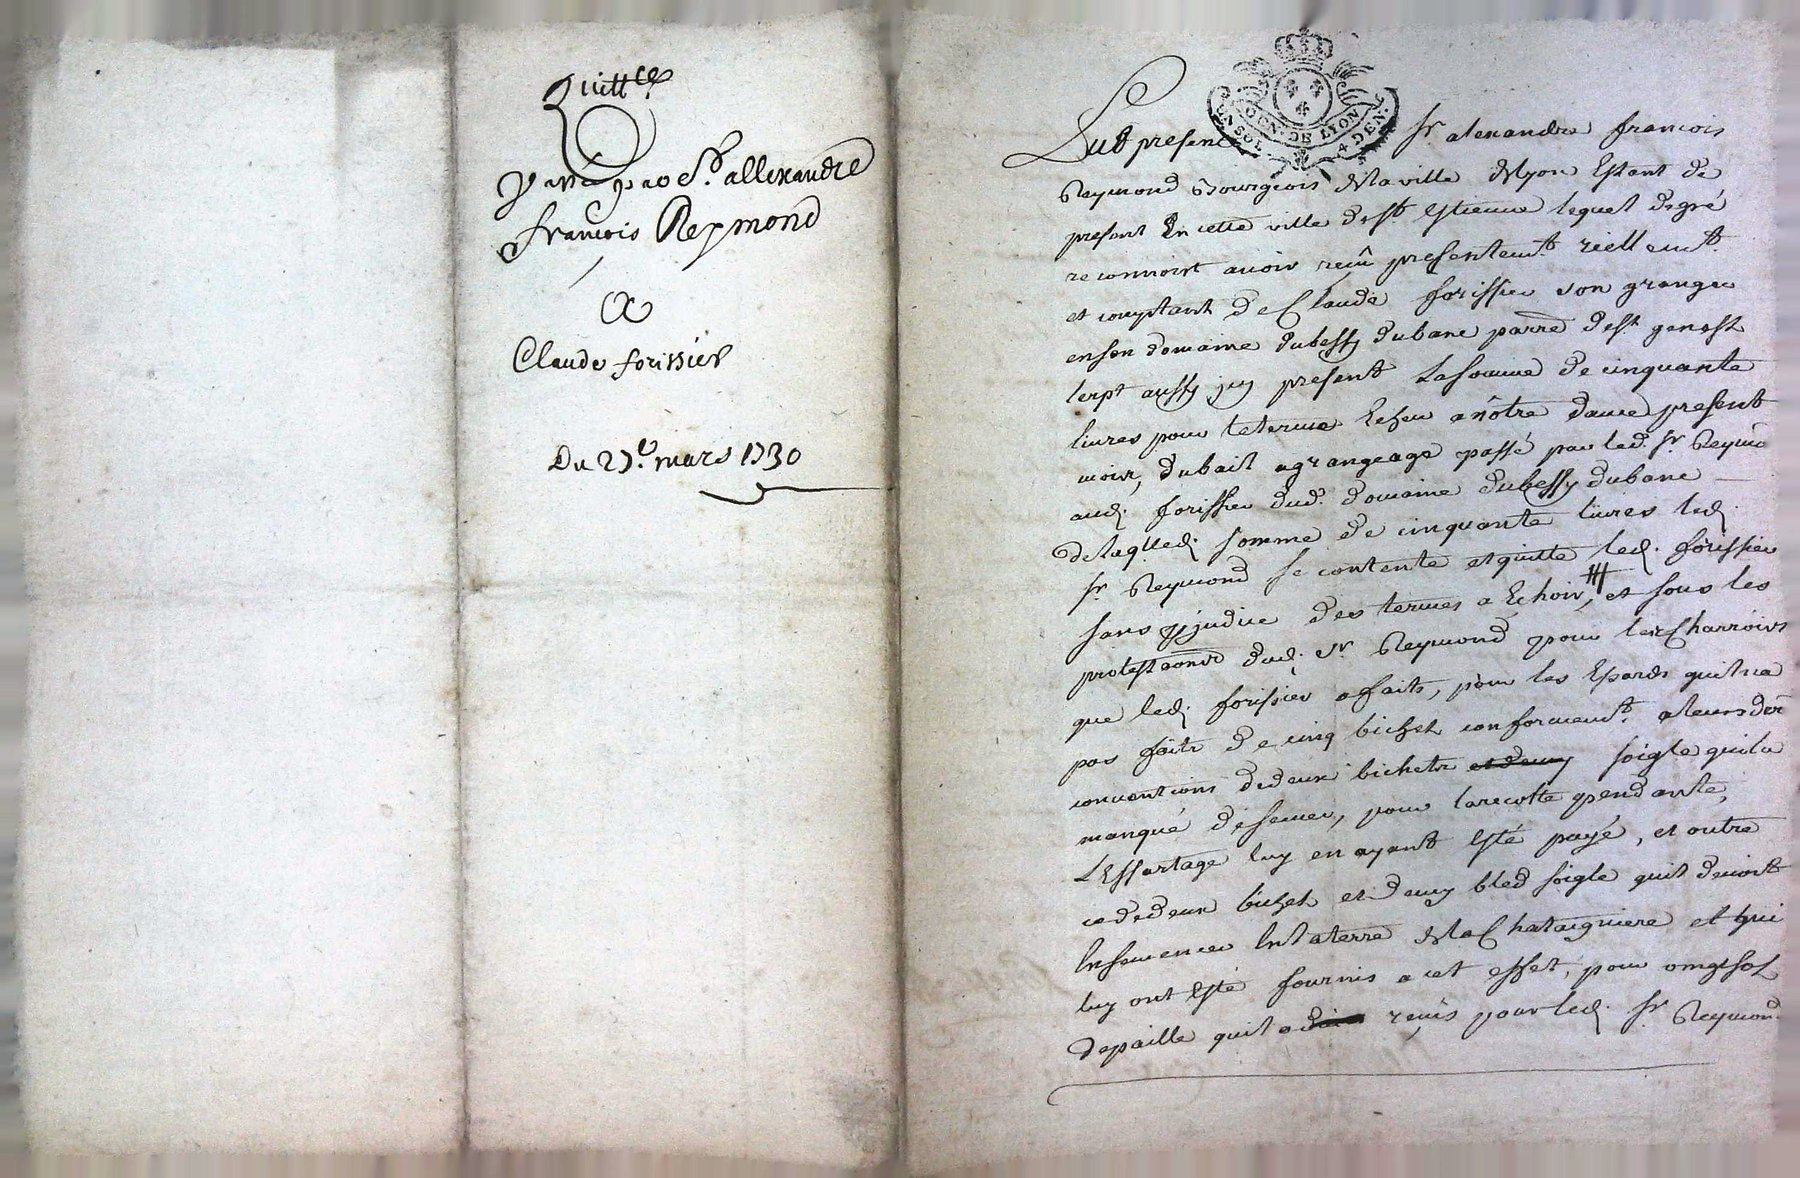 Quittce
passée par Sr. allexandre
francois Reymond
A
Claude forissier
Du 27e. mars 1730
GEN. DE LYON
UN SOL 4 DEN.
fut present Sr. alexandre francois
Reymond Bourgeois dela ville delyon Estant de
present En cette ville de st. Estienne lequel de gré
reconnoist avoir reçu presentemt. réellemt.
et comptant de Claude forissier son granger
en son domaine dubessy dubanc parre de st genest
lerpt aussy present La somme de cinquante
livres pour le terme Echeu a nôtre dame present
mois, du bail a grangeage passé par led. Sr Reymo
aud. forissier dud. domaine dubessy dubanc
de laqlled. somme de cinquante livres led.
Sr. Reymond se contente et quitte led. forissier
sans pjudice des termes a Echoir, et sous les
protestaons dud. Sr Reymond pour les Charrois
que led. forissier a faits, pour les qu'il n'a
pas faits de cinq bichets conformemt. a leurs
conventions de deux bichets et demy soigle quil a
manqué de semer, pour la recolte pendante,
L'Essartage luy en ayant Esté payé, et outre
ce de deux bichets et demy bled soigle quil devoit
Ensemencer En la terre dela Chataigniere et qui
luy ont Esté fournis a cet effet, pour
de paille quil a reçus pour led. Sr Reymond